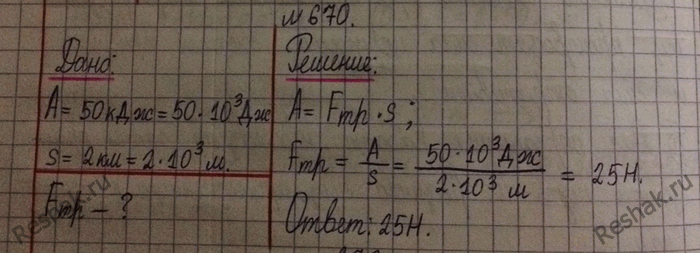 №670.
Дано:
A = 50кДж = 50·10³Дж
s = 2км = 2·10³м.
Fтр – ?
Решение:
A = Fтр·s;
Fтр = A/s = 50·10³Дж / 2·10³ м = 25Н.
Ответ: 25Н.
Reshak.ru
Reshak.ru